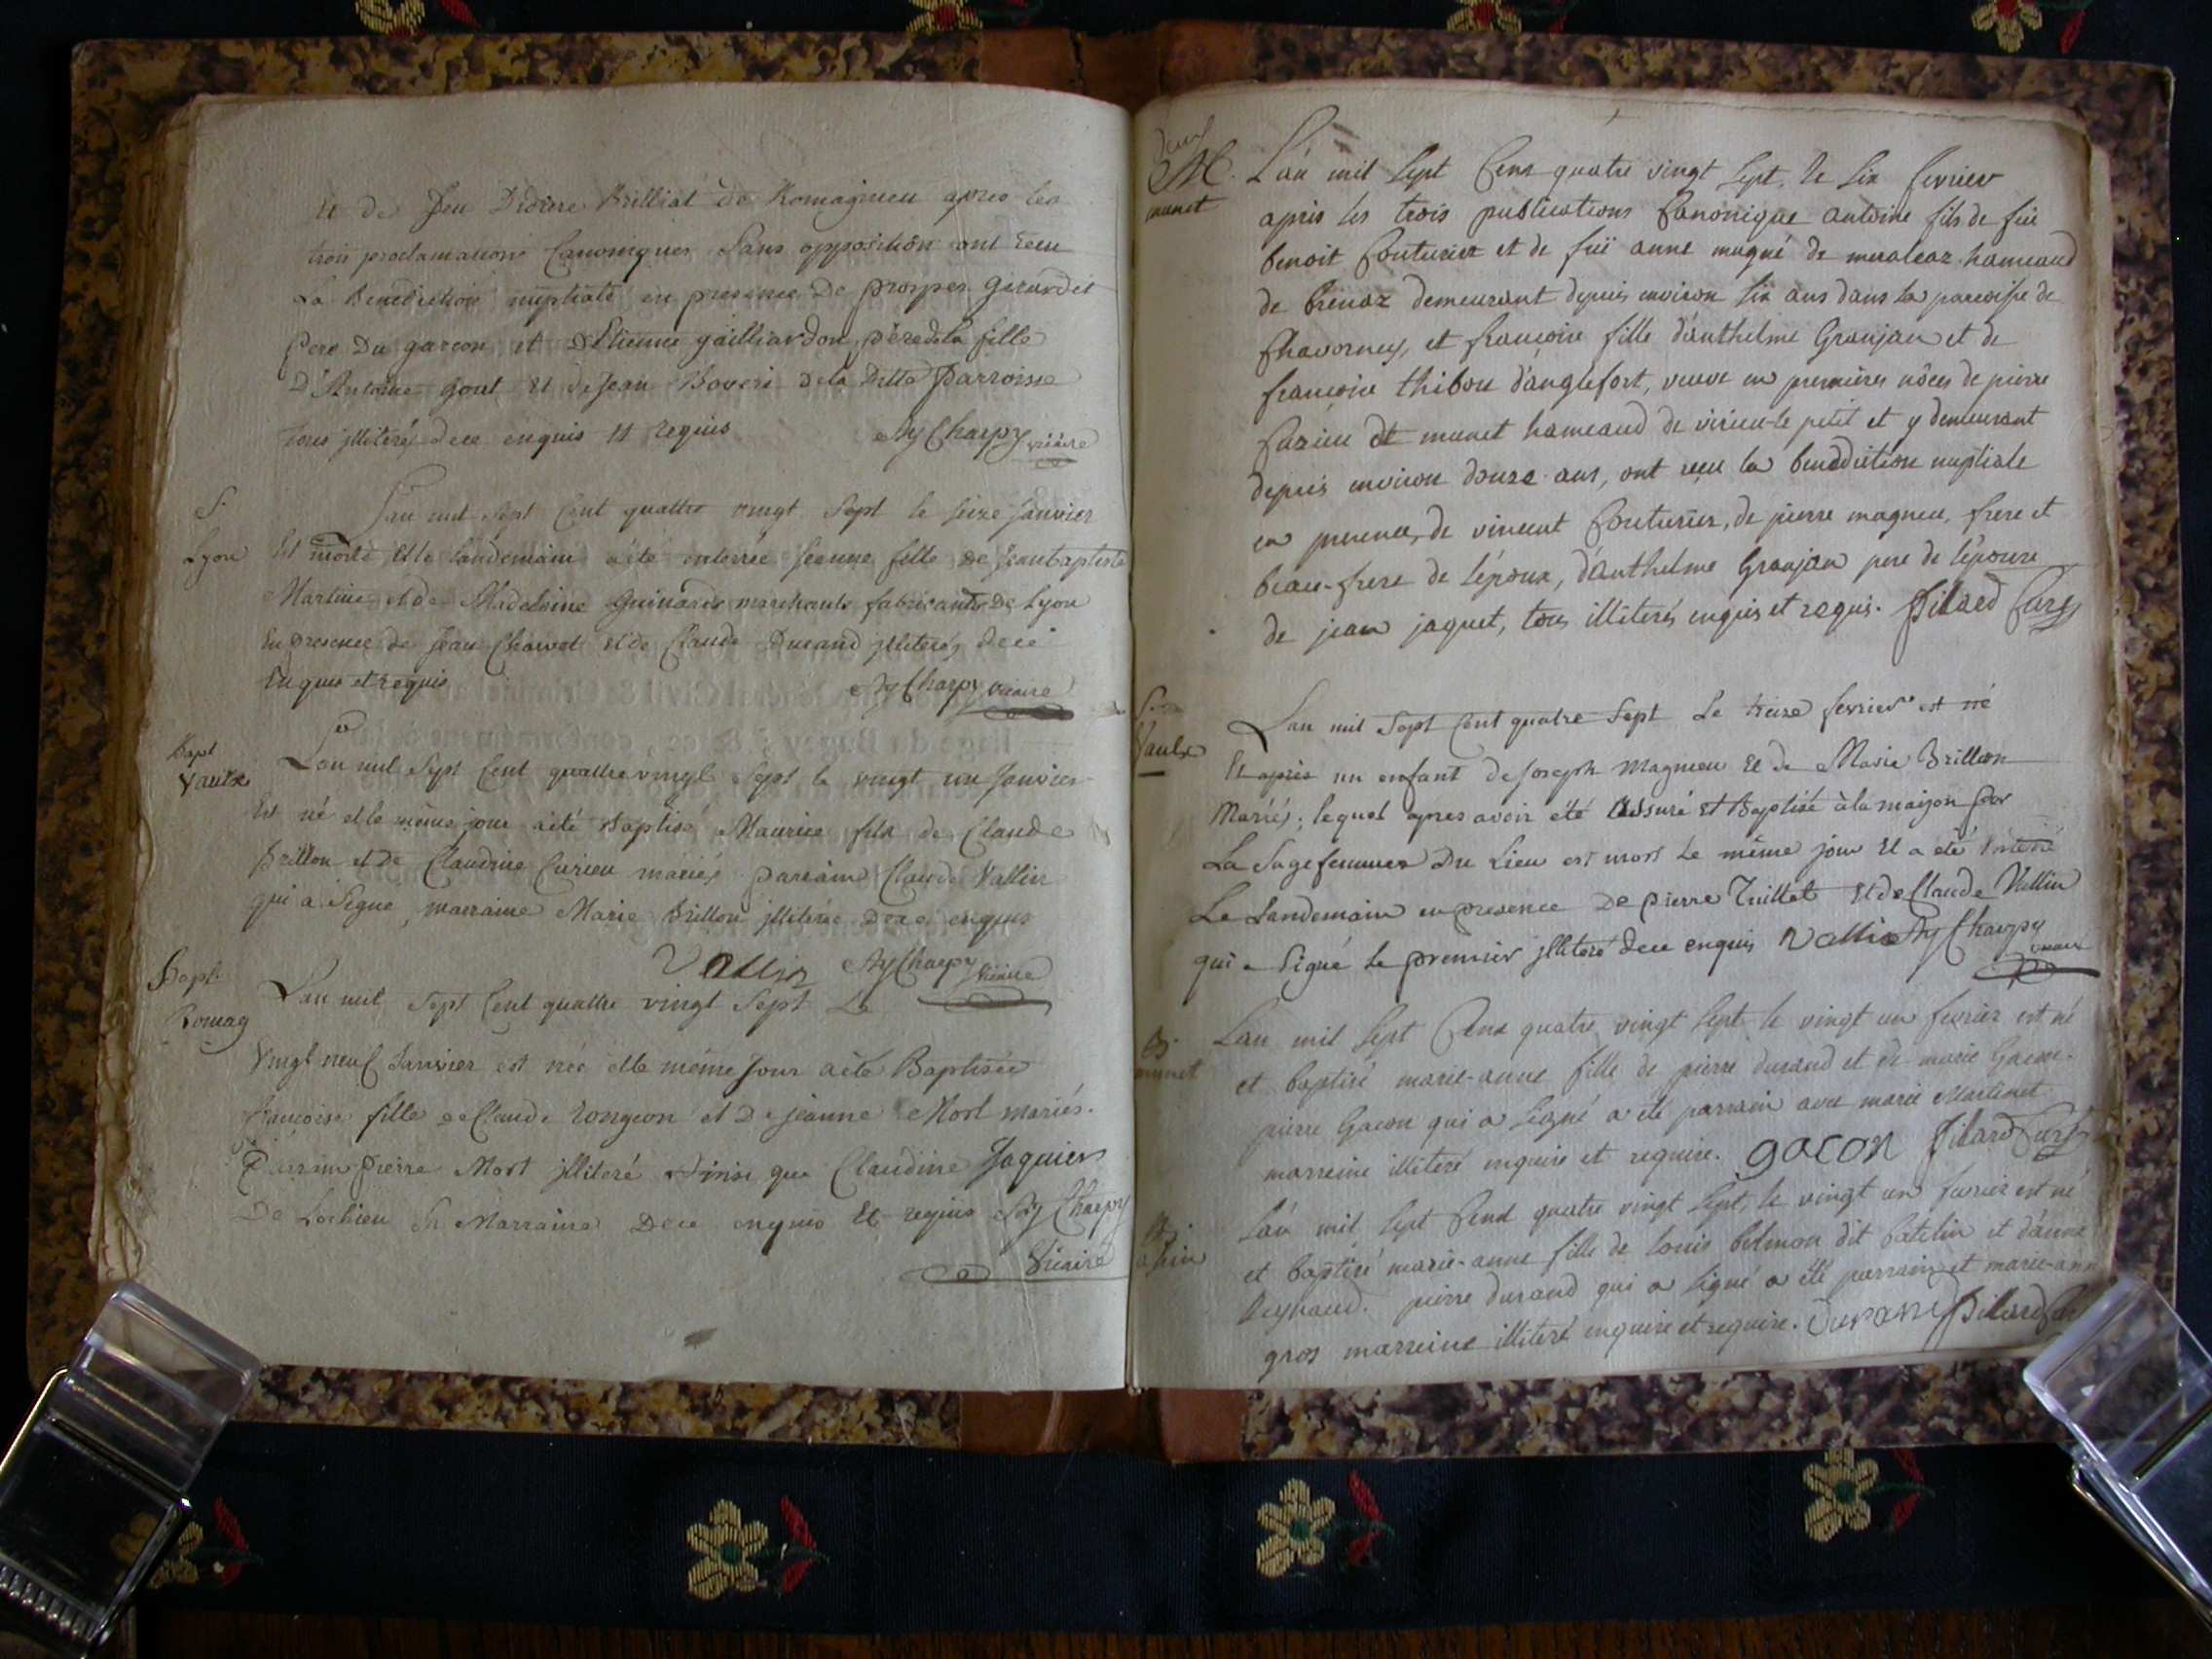 et de feu Didiere Brilliat de Romagnieu apres les
trois proclamations Canoniques Sans opposition ont reçu
La Benediction nuptiale en presence De prosper girardet
Pere Du garcon et D'Etienne gailliardon père de la fille
D'Antoine gout et de Jean Boveri de la Ditte Parroisse
tous jlliterés de ce enquis et requis AyCharpy vicaire
S.
Lyon
L'an mil Sept Cent quattre vingt Sept le seize Janvier
Est morte et le landemain a été enterrée Jeanne fille de Jean Baptiste
Martin et de Madeleine guinard marchands fabricants De Lyon
En presence de Jean Charvet et de Claude Durand jlliterés de ce
Enquis et requis AyCharpy vicaire
Bapt
Vaulx
L'an mil Sept Cent quattre vingt Sept le vingt un Janvier
Est né et le même jour a été Baptisé Maurice fils de Claude
Brillon et de Claudine Curieu mariés parrain Claude Vallin
qui a Signé, marraine Marie Brillon jlliterée de ce enquis
Vallin AyCharpy Vicaire
Bapt
Romag
L'an mil Sept Cent quattre vingt Sept Le
Vingt neuf Janvier est née et le même Jour a été Baptisée
françoise fille de Claude rongeon et De jeanne Mort mariés.
Parrain Pierre Mort jlliteré ainsi que Claudine Jaquier
De Lochieu Sa Marraine De ce enquis Et requis AyCharpy
Vicaire
M.
munet
L'an mil Sept Cent quatre vingt Sept, le six fevrier
après les trois publications Canonique antoine fils de feü
benoit Couturier et de feü anne mugné de hameaud
de brenaz demeurant depuis environ six ans dans la paroisse de
Chavornay, et françoise fille d'anthelme Granjan et de
françoise thibou d'anglefort, veuve en premières nôces de pierre
Cazieu de munet hameaud de virieu-le petit et y demeurant
depuis environ douze ans, ont reçu la benediction nuptiale
en presence, de vincent Couturier, de pierre magneu, frere et
beau-frere de l'époux, d'anthelme Granjan pere de l'épouse
de jean jaquet, tous illiterés enquis et requis. Pilard Curé
S.
Vaulx
L'an mil Sept Cent quatre Sept Le treize fevrier est né
Et après un enfant de Joseph Magnieu et de Marie Brillon
Mariés; lequel apres avoir été assuré Et Baptisé à la maison par
La Sage femme Du Lieu est mort Le même jour Et a été Enterré
Le Landemain en presence De pierre Truillet et de Claude Vallin
qui a Signé Le premier jlliteré de ce enquis Vallin AyCharpy
vicaire
B.
munet
L'an mil Sept Cent quatre vingt Sept le vingt un fevrier est né
et baptisé marie-anne fille de pierre durand et de marie Gacon.
pierre Gacon qui a signé a été parrain avec marie Martinet
marreine illiteré enquise et requise. gacon Pilard Curé
B.
L'an mil Sept Cent quatre vingt Sept, le vingt un fevrier est né
et baptisé marie-anne fille de louis belmon dit batelin et d'anne
Reynaud. pierre durand qui a signé a été parrain et marie-ann
gros marreine illiteré enquise et requise. Durand Pilard